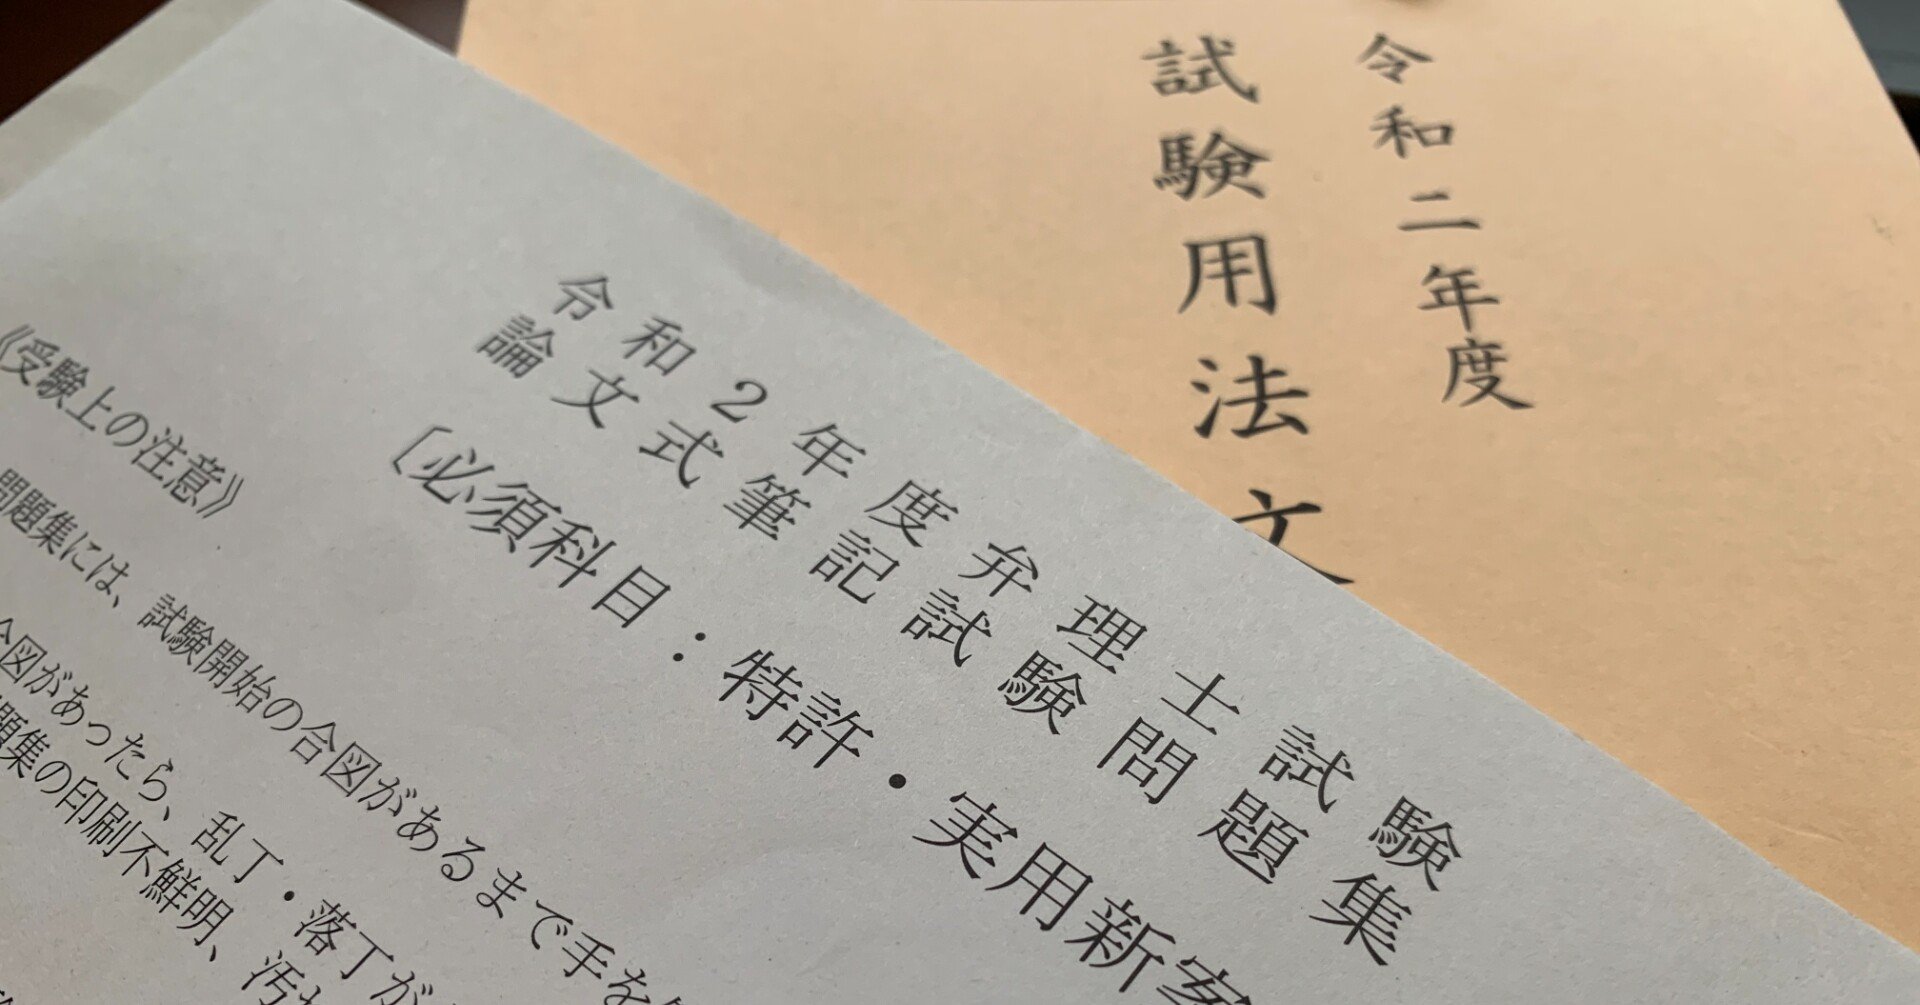 令和二年度
試験用法文
令和２年度弁理士試験
論文式筆記試験問題集
〔必須科目：特許・実用新案
《受験上の注意》
問題集には、試験開始の合図があるまで手を
合図があったら、乱丁・落丁が
題集の印刷不鮮明、汚れ